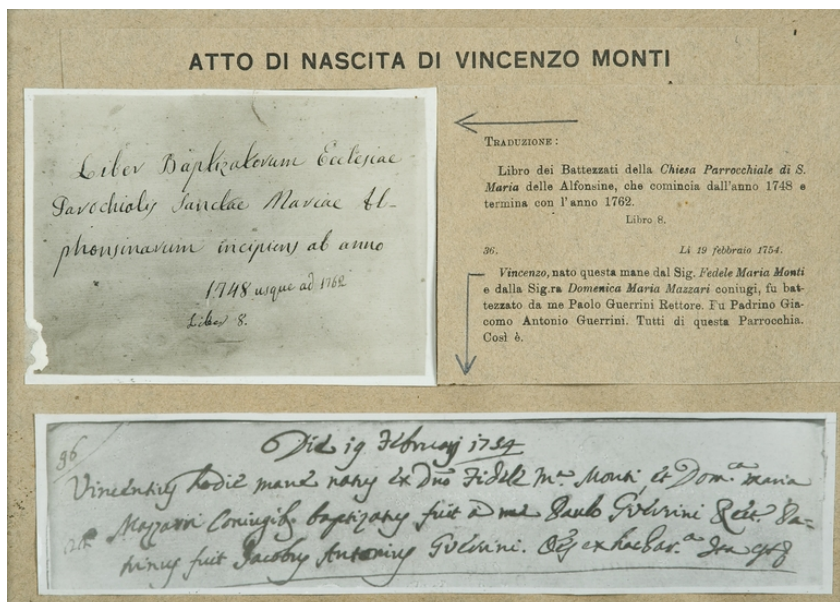 ATTO DI NASCITA DI VINCENZO MONTI
Liber Baptizatorum Ecclesiae
Parochialis Sanctae Mariae Al-
phonsinarum incipiens ab anno
1748 usque ad 1762
Liber 8.
TRADUZIONE:
Libro dei Battezzati della Chiesa Parrocchiale di S.
Maria delle Alfonsine, che comincia dall'anno 1748 e
termina con l'anno 1762.
Libro 8.
36. Lì 19 febbraio 1754.
Vincenzo, nato questa mane dal Sig. Fedele Maria Monti
e dalla Sig.ra Domenica Maria Mazzari coniugi, fu bat-
tezzato da me Paolo Guerrini Rettore. Fu Padrino Gia-
como Antonio Guerrini. Tutti di questa Parrocchia.
Così è.
36 Die 19 Februarij 1754
Vincentius hodie mane natus ex Dno Fidele Mª Monti et Dom.ca maria
Mazzarri Coniugib. baptizatus fuit a me Paulo Guerrini Rect. Pa-
trinus fuit Jacobus Antonius Guerrini. Oēs ex hac Par.a Ita est